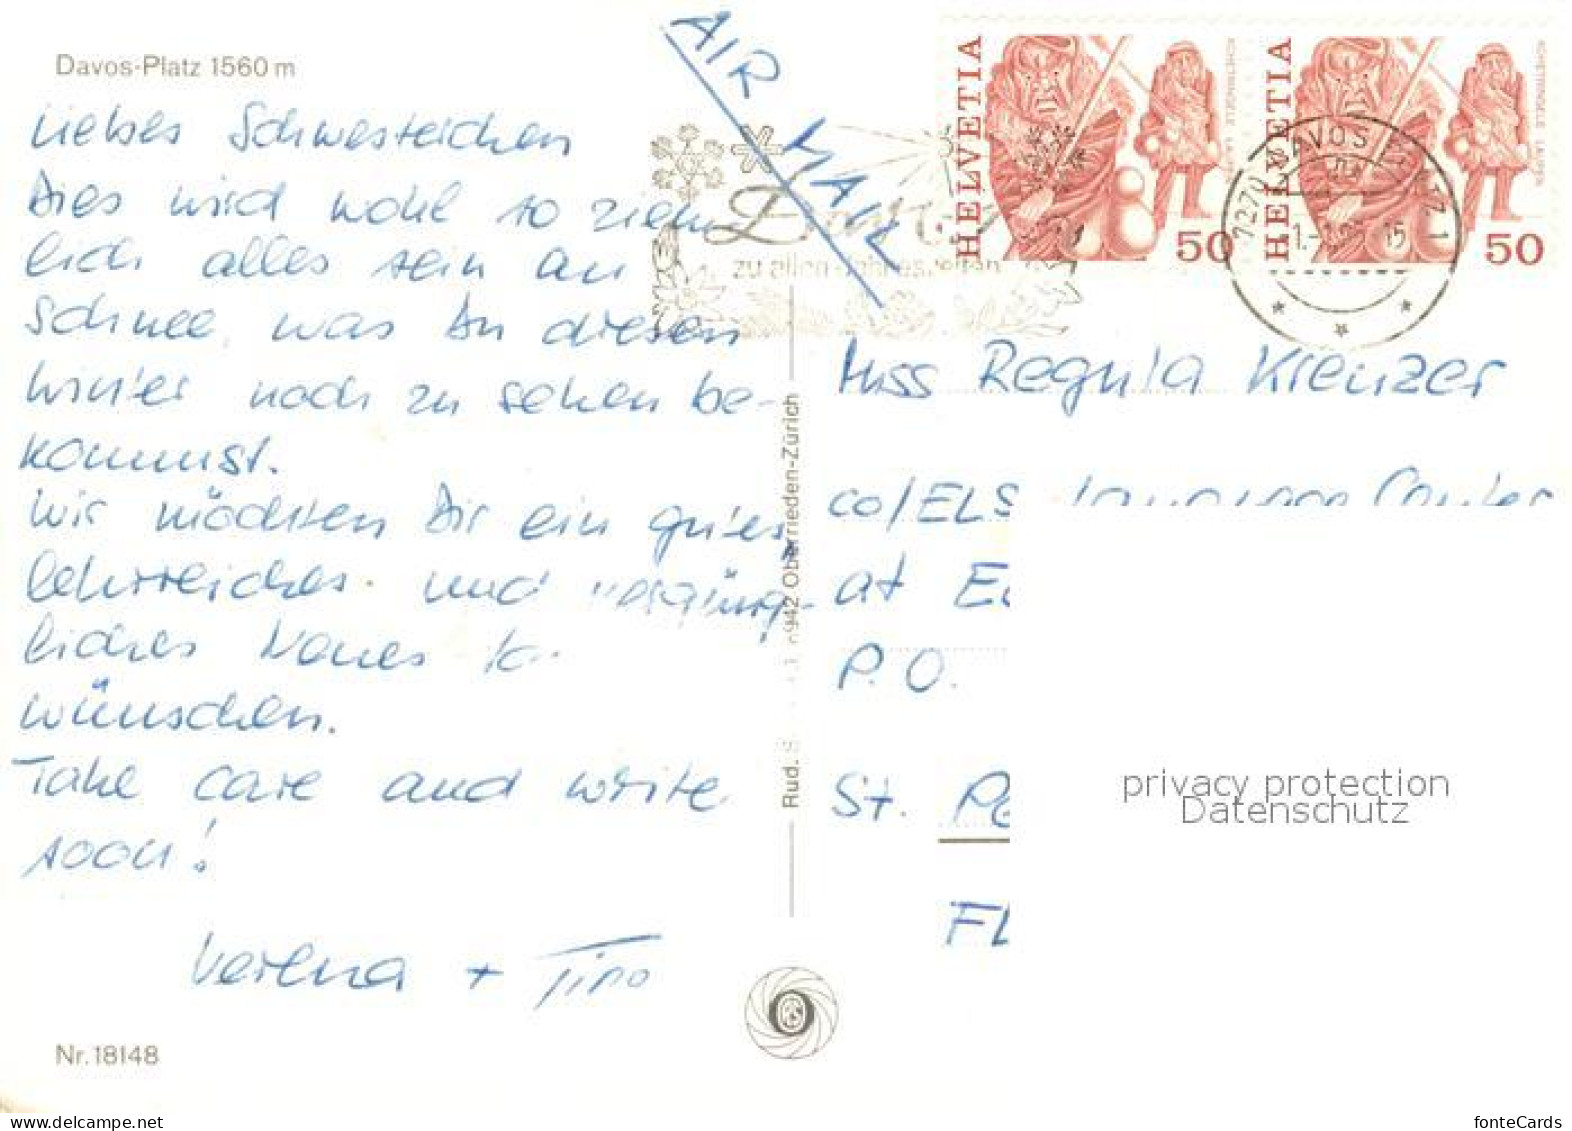 Davos-Platz 1560 m
Liebes Schwesterchen
Dies wird wohl so ziem
lich alles sein an
Schnee, was Du diesen
Winter noch zu sehen be-
kommst.
Wir möchten Dir ein gutes,
lehrreiches und vergnüg-
liches Neues
wünschen.
Take care and write
soon!
Verena + Tino
Nr. 18148
AIR MAIL
HELVETIA
50
HELVETIA
50
ACHETRINGELE LAUPEN
ACHETRINGELE LAUPEN
Davos
zu allen Jahreszeiten
7270 DAVOS PLATZ 1
Rud.
8942 Oberrieden-Zürich
Miss Regula Kreuzer
co/ELS Language Center
at
P.O.
St.
FL
privacy protection
Datenschutz
www.delcampe.net
fonteCards